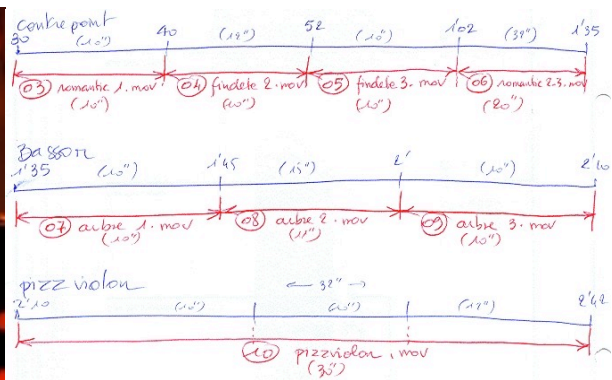 contrepoint
30 (10") 40 (12") 52 (10") 1'02 (32") 1'35
03 romantic 1. mov 04 findete 2. mov 05 findete 3. mov 06 romantic 2.3. mov
(10") (10") (10") (20")
Basson
1'35 (10") 1'45 (15") 2' (10") 2'10
07 arbre 1. mov 08 arbre 2. mov 09 arbre 3. mov
(10") (11") (10")
pizz violon ← 32" →
2'10 (10") (10") (12") 2'42
10 pizzviolon. mov
(30")